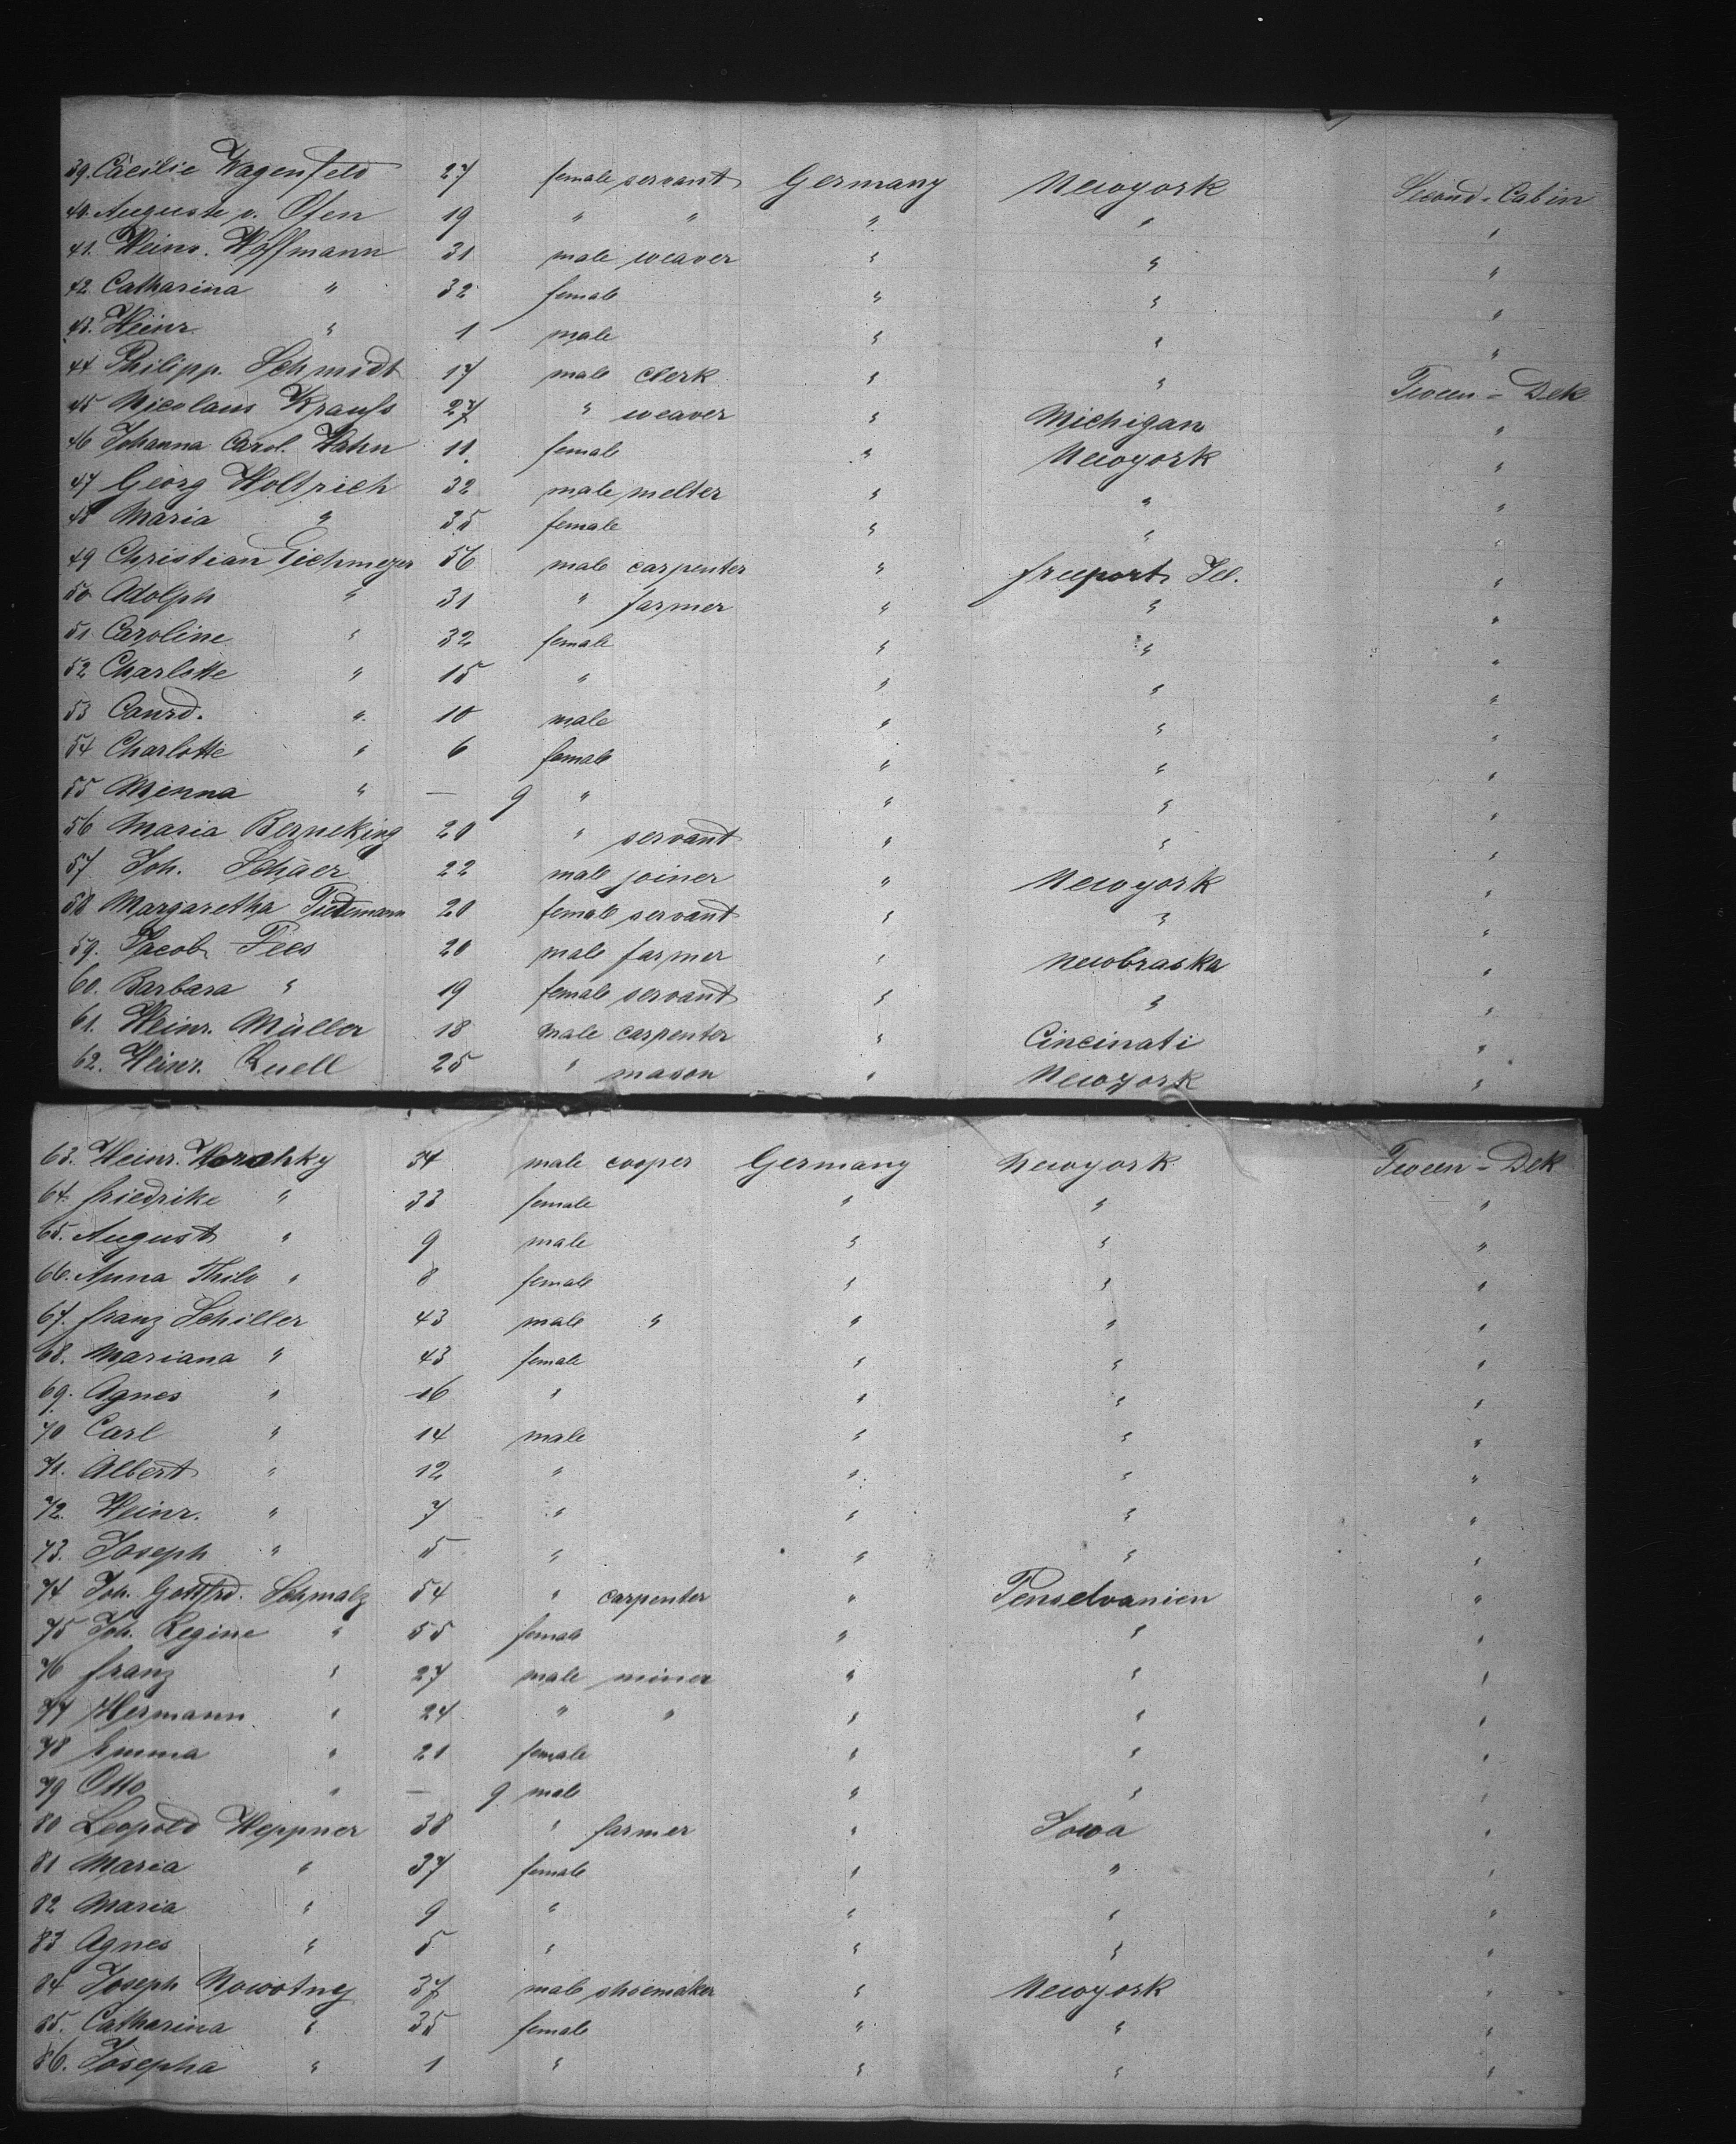 39. Cäcilie Wagenfeld 27 female servant Germany Newyork Second-Cabin
40. Auguste v. Oten 19 " " " " "
41. Heinr. Hoffmann 31 male weaver " " "
42. Catharina " 32 female " " "
43. Heinr. " 1 male " " "
44 Philipp. Schmidt 17 male clerk " " Tween-Dek
45 Nicolaus Krauss 27 " weaver " Michigan "
46 Johanna Carol. Hahn 11. female " Newyork "
47 Georg Holtrich 32 male melter " " "
48 Maria " 35 female " " "
49 Christian Eichmeyer 56 male carpenter " freeport Ill. "
50 Adolph " 31 " farmer " " "
51 Caroline " 32 female " " "
52 Charlotte " 15 " " " "
53 Canrd. " 10 male " " "
54 Charlotte " 6 female " " "
55 Minna " — 9 " " " "
56 Maria Berneking 20 " servant " " "
57. Joh. Schäer 22 male joiner " Newyork "
58 Margaretha Tiedemann 20 female servant " " "
59. Jacob Fees 20 male farmer " Newbraska "
60. Barbara " 19 female servant " " "
61. Heinr. Müller 18 male carpenter " Cincinati "
62. Heinr. Quell 25 " mason " Newyork "
63. Heinr. 34 male cooper Germany Newyork Tween-Dek
64. friedrike " 33 female " " "
65. August " 9 male " " "
66. Anna Thilo " 8 female " " "
67. franz Schiller 43 male " " " "
68. Mariana " 43 female " " "
69. Agnes " 16 " " " "
70 Carl " 14 male " " "
71. Albert " 12 " " " "
72. Heinr. " 7 " " " "
73. Joseph " 5 " " " "
74 Joh. Gottfrd. Schmalz 54 " carpenter " Penselvanien "
75 Joh. Regine " 55 female " " "
76 franz " 27 male miner " " "
77 Hermann " 24 " " " " "
78 Emma " 21 female " " "
79 Otto " — 9 male " " "
80 Leopold Heppner 38 " farmer " Iowa "
81 Maria " 37 female " " "
82 Maria " 9 " " " "
83 Agnes " 5 " " " "
84 Joseph Nowotny 37 male shoemaker " Newyork "
85. Catharina " 35 female " " "
86. Josepha " 1 " " " "